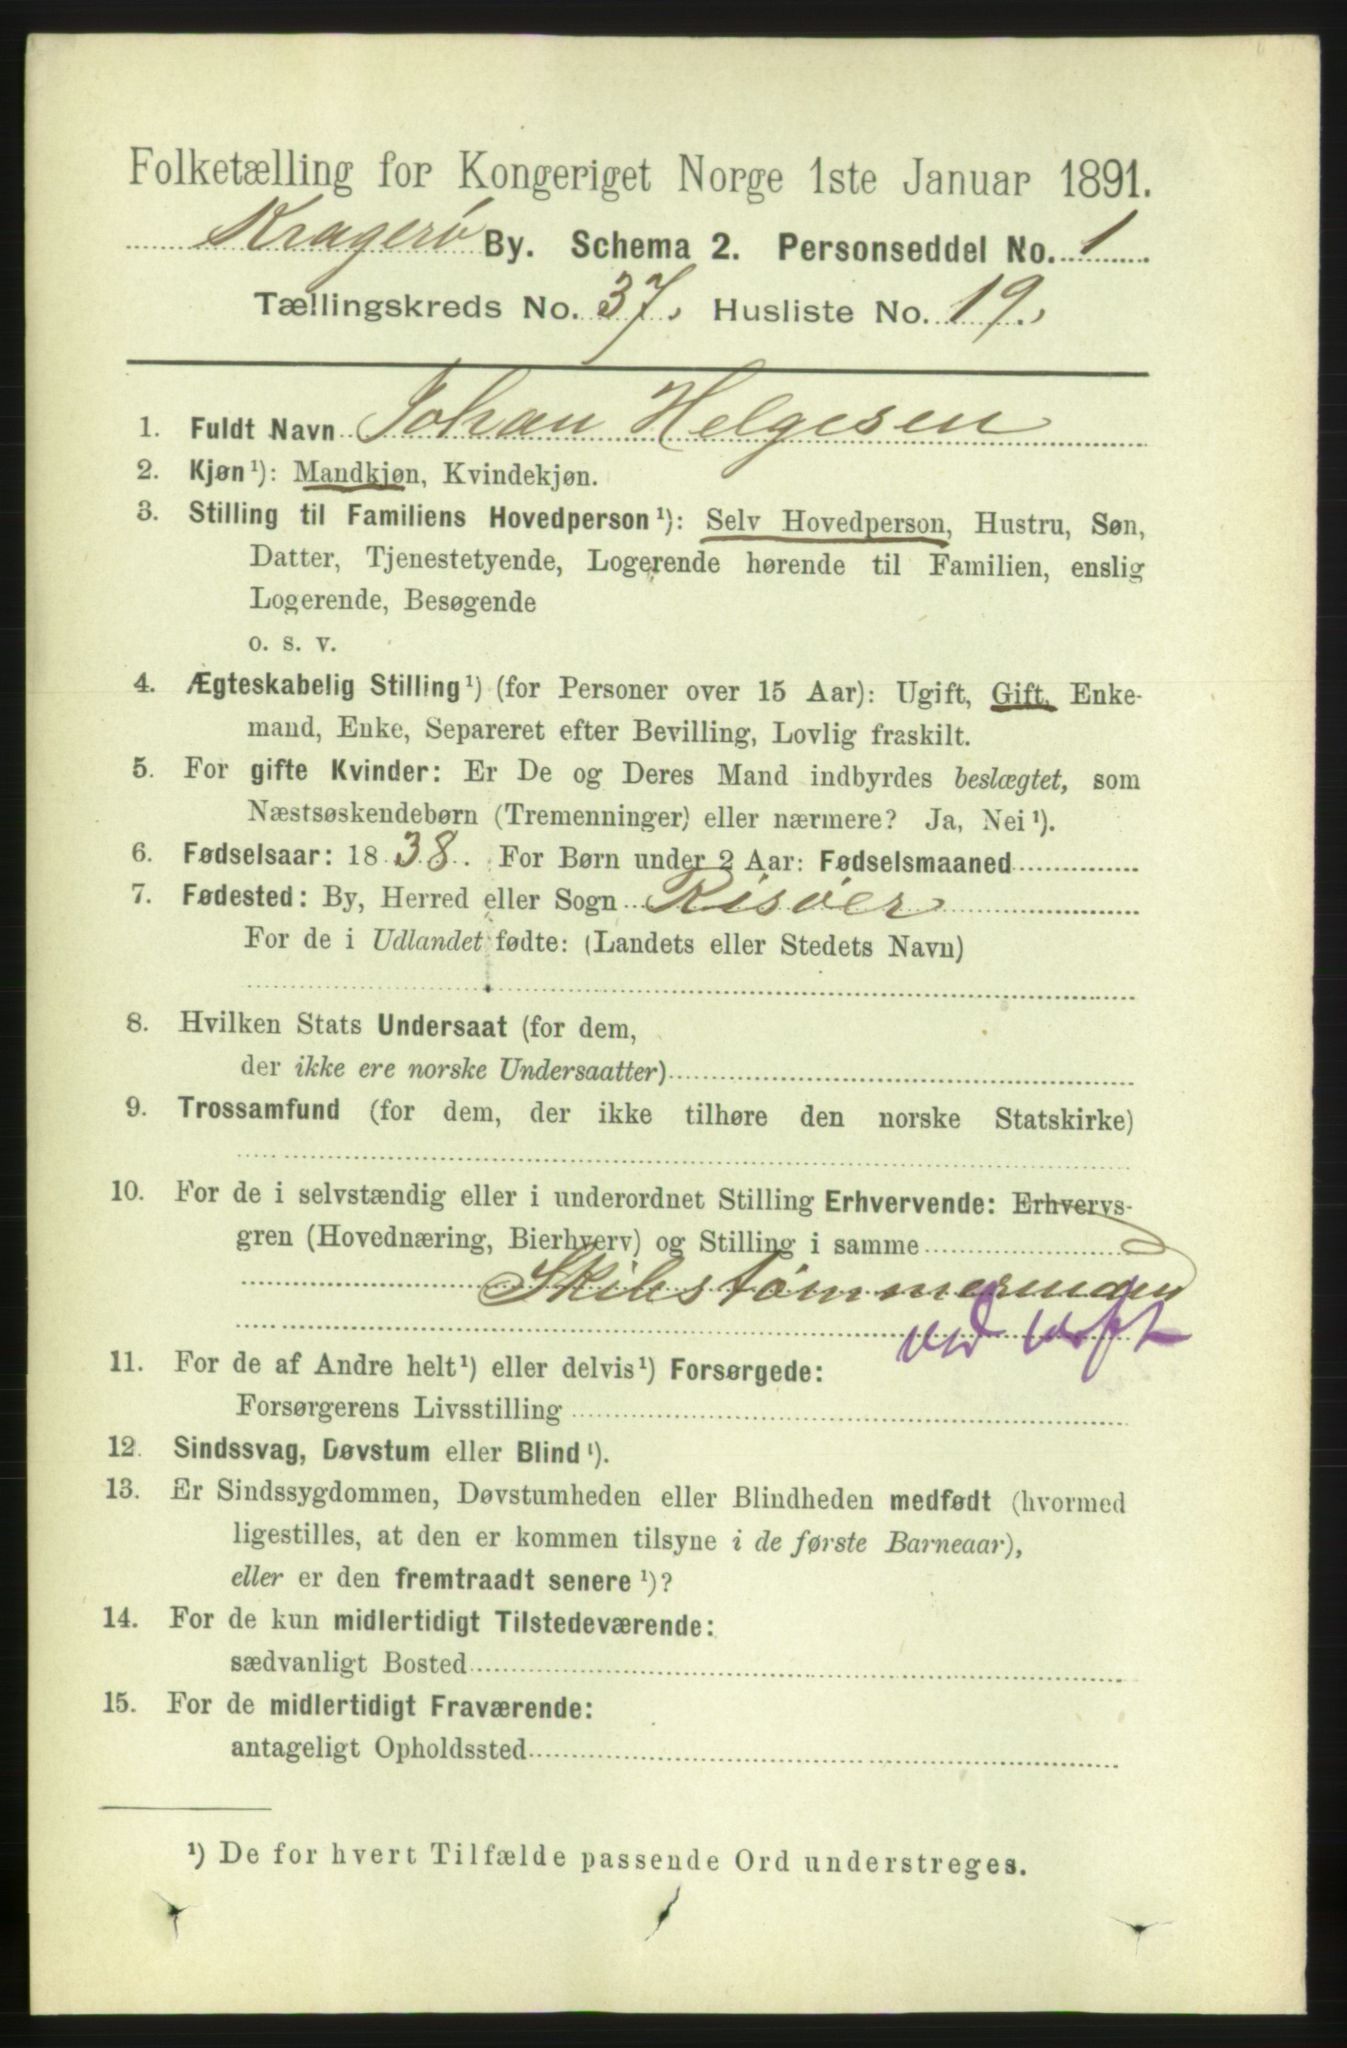 Folketælling for Kongeriget Norge 1ste Januar 1891.
Kragerö By. Schema 2. Personseddel No. 1
Tællingskreds No. 37. Husliste No. 19.
1. Fuldt Navn Johan Helgesen
2. Kjøn¹): Mandkjøn, Kvindekjøn.
3. Stilling til Familiens Hovedperson¹): Selv Hovedperson, Hustru, Søn,
Datter, Tjenestetyende, Logerende hørende til Familien, enslig
Logerende, Besøgende
o. s. v.
4. Ægteskabelig Stilling¹) (for Personer over 15 Aar): Ugift, Gift, Enke-
mand, Enke, Separeret efter Bevilling, Lovlig fraskilt.
5. For gifte Kvinder: Er De og Deres Mand indbyrdes beslægtet, som
Næstsøskendebørn (Tremenninger) eller nærmere? Ja, Nei¹).
6. Fødselsaar: 1838. For Børn under 2 Aar: Fødselsmaaned
7. Fødested: By, Herred eller Sogn Risöer
For de i Udlandet fødte: (Landets eller Stedets Navn)
8. Hvilken Stats Undersaat (for dem,
der ikke ere norske Undersaatter)
9. Trossamfund (for dem, der ikke tilhøre den norske Statskirke)
10. For de i selvstændig eller i underordnet Stilling Erhvervende: Erhvervs-
gren (Hovednæring, Bierhverv) og Stilling i samme
Skibstømmermand
ved
11. For de af Andre helt¹) eller delvis¹) Forsørgede:
Forsørgerens Livsstilling
12. Sindssvag, Døvstum eller Blind¹).
13. Er Sindssygdommen, Døvstumheden eller Blindheden medfødt (hvormed
ligestilles, at den er kommen tilsyne i de første Barneaar),
eller er den fremtraadt senere¹)?
14. For de kun midlertidigt Tilstedeværende:
sædvanligt Bosted
15. For de midlertidigt Fraværende:
antageligt Opholdssted
¹) De for hvert Tilfælde passende Ord understreges.